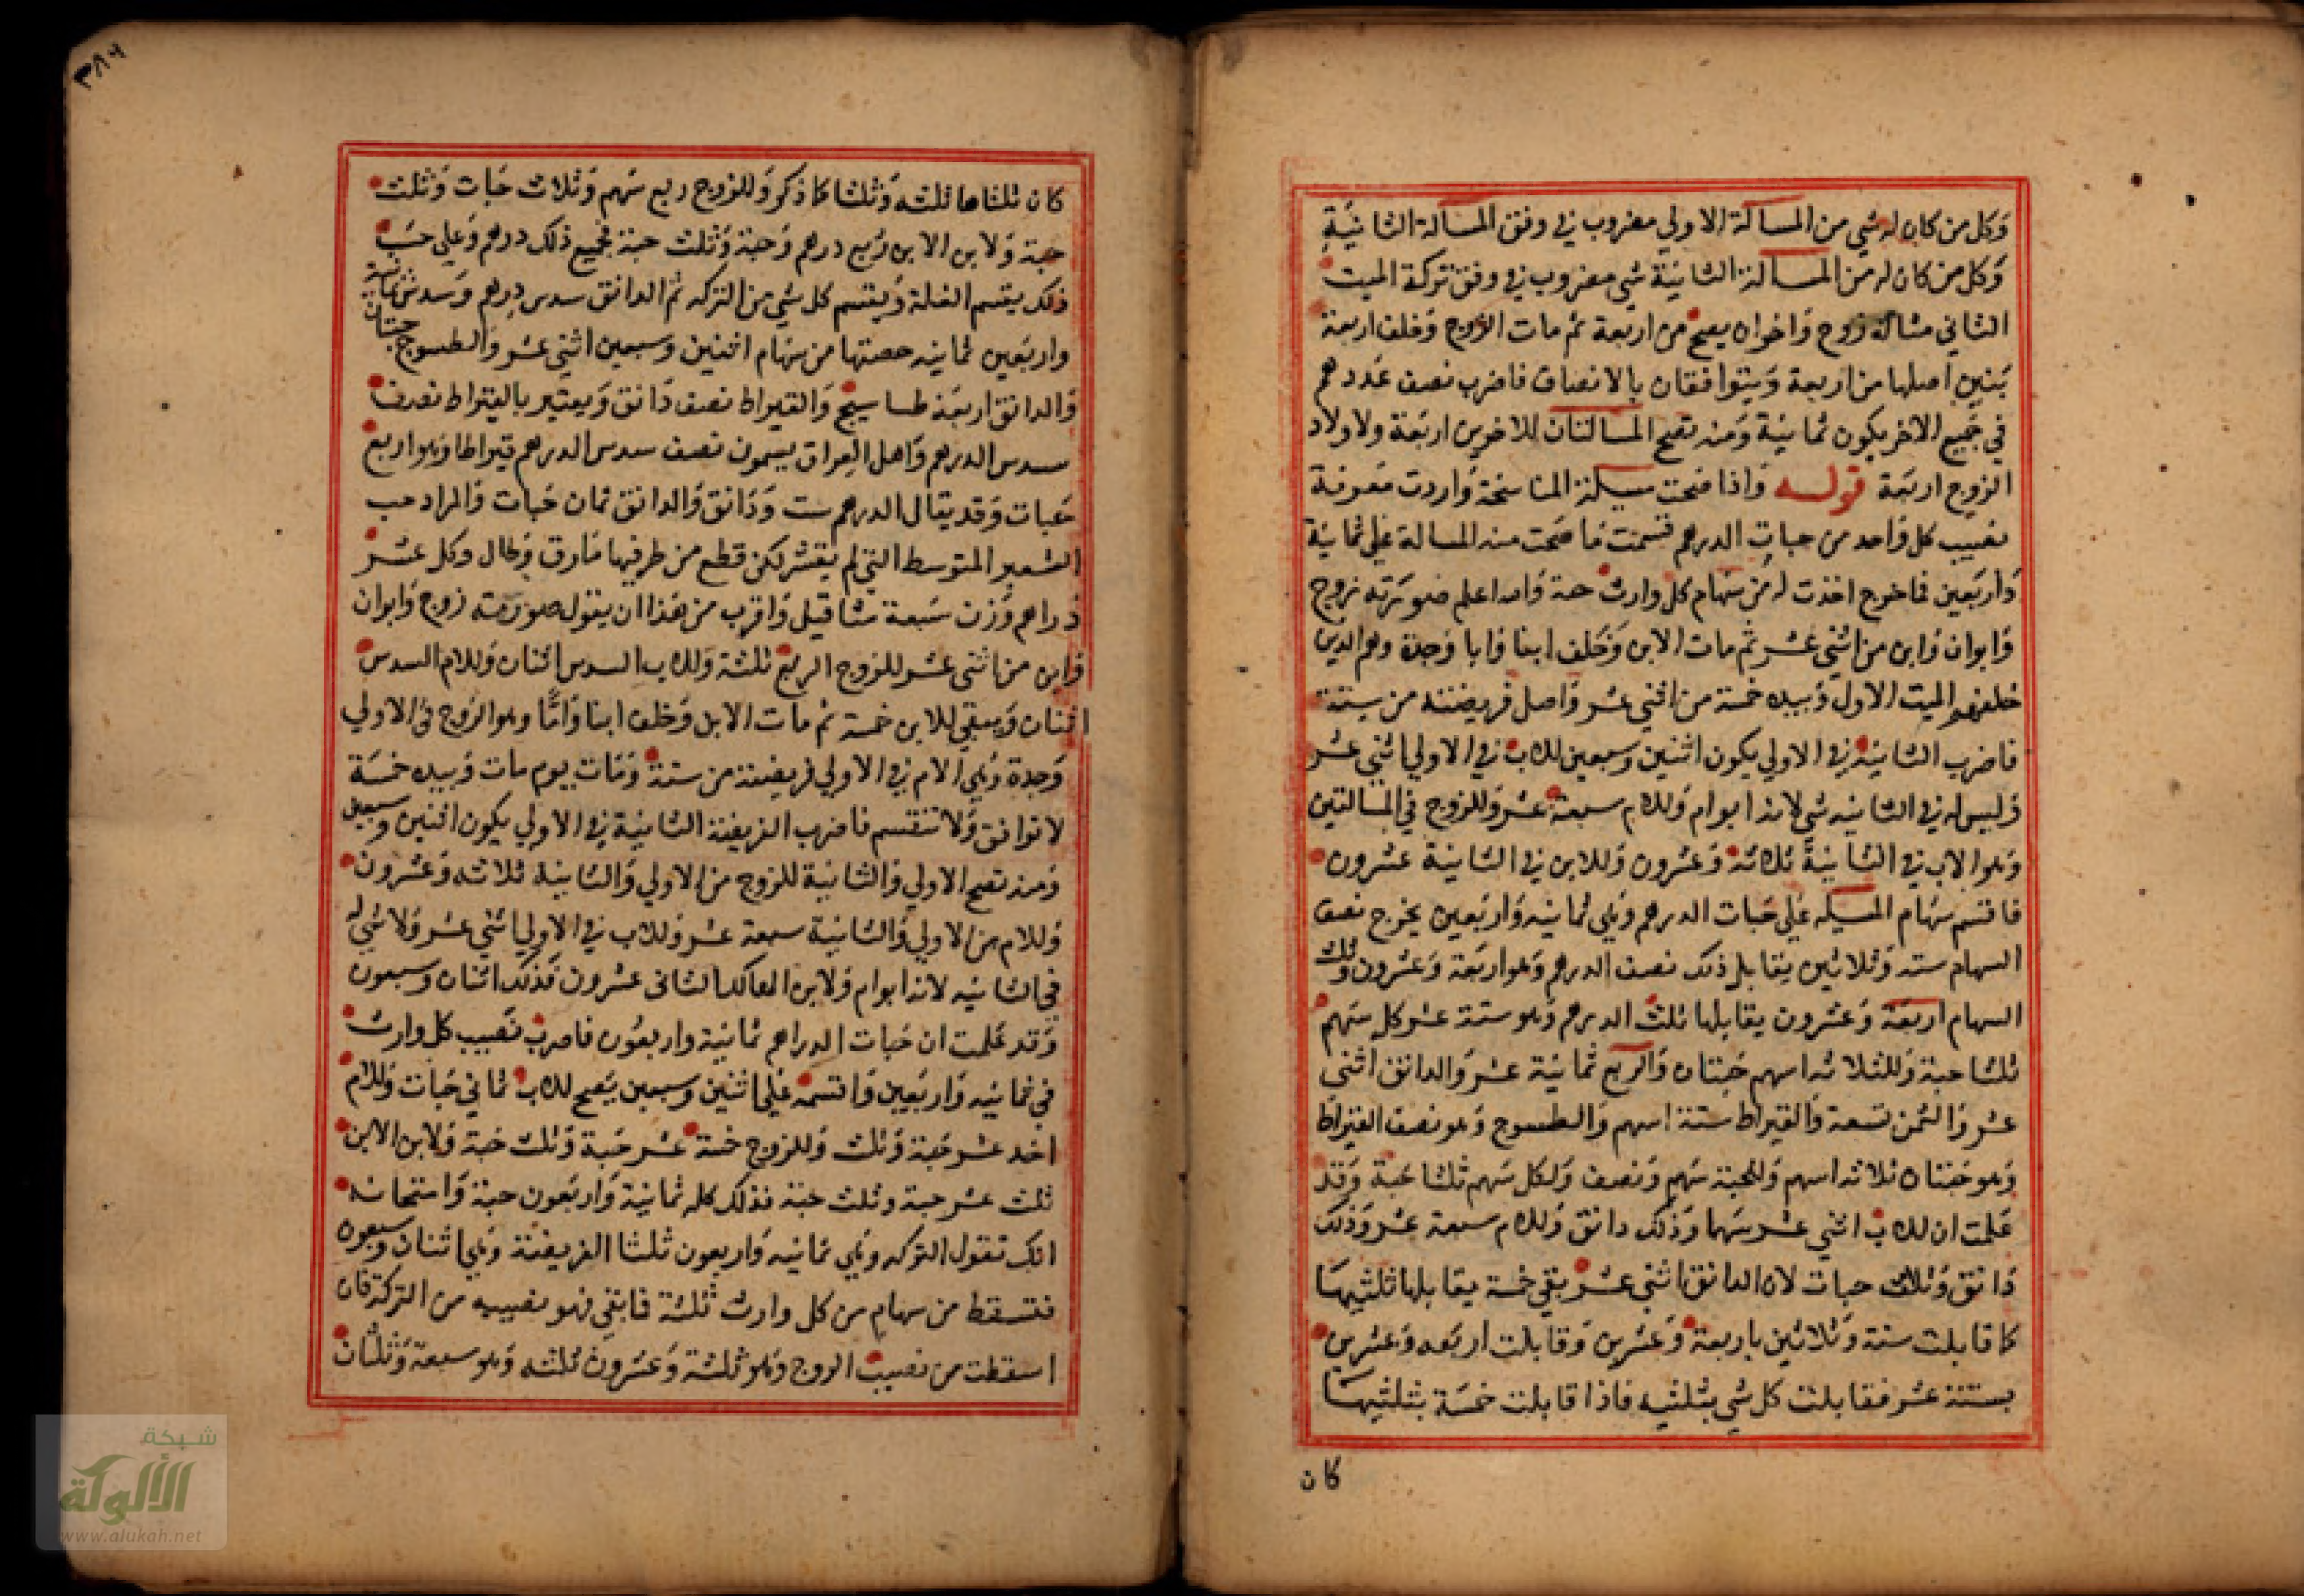 وكل من كان له شي من المسالة الاولي مضروب في وفق المسالة الثانية
وكل من كان له من المسالة الثانية شي مضروب في وفق تركة الميت
الثاني مثاله زوج واخوان يصح من اربعة ثم مات الزوج وخلف اربعة
بنين اصلها من اربعة ويتوافقان بالانصاف فاضرب نصف عددهم
في جميع الاخر يكون ثمانية ومنه تصح المسالتان للاخوين اربعة ولاولاد
الزوج اربعة قوله واذا صحت مسيلة المناسخة واردت معرفة
نصيب كل واحد من حبات الدرهم قسمت ما صحت منه المسالة علي ثمانية
واربعين فما خرج اخذت له من سهام كل وارث حبة والله اعلم صورته زوج
وابوان وابن من اثني عشر ثم مات الابن وخلف ابنا وابا وجدة وهم الذين
خلفهم الميت الاول وبيده خمسة من اثني عشر واصل فريضته من ستة
فاضرب الثانية في الاولي يكون اثنين وسبعين للاب في الاولي اثني عشر
وليس له في الثانيه شي لانه ابو ام وللام سبعة عشر وللزوج في المسالتين
وهو الاب في الثانية ثلاثة وعشرون وللابن في الثانية عشرون
فاقسم سهام المسيله علي حبات الدرهم وهي ثمانيه واربعين يخرج نصف
السهام سته وثلاثين يقابل ذلك نصف الدرهم وهو اربعة وعشرون وثلث
السهام اربعة وعشرون يقابلها ثلث الدرهم وهو ستة عشر كل سهم
ثلثا حبة وللثلاثه اسهم حبتان والربع ثمانية عشر والدانق اثني
عشر والثمن تسعة والقيراط ستة اسهم والطسوج وهو نصف القيراط
وهو حبتان ثلاثه اسهم وللحبة سهم ونصف ولكل سهم ثلثا حبة وقد
علمت ان للاب اثني عشر سهما وذلك دانق وللام سبعة عشر وذلك
دانق وثلاث حبات لان الدانق اثني عشر بقي خمسة يقابلها ثلثيها
كما قابلت ستة وثلاثين باربعة وعشرين وقابلت اربعه وعشرين
بستة عشر فقابلت كل شي بثلثيه فاذا قابلت خمسة بثلثيها
كان
٣٨٦
كان ثلثاها ثلثه وثلثا كما ذكر وللزوج ربع سهم وثلاث حبات وثلث
حبة ولابن الابن ربع درهم وحبة وثلث حبة فجميع ذلك درهم وعلي حسب
ذلك يقسم الغلة ويقسم كل شي من التركه ثم الدانق سدس درهم وسدس ثمانية
واربعين ثمانيه حصتها من سهام اثنين وسبعين اثني عشر والطسوج حبتان
والدانق اربعة طساسيج والقيراط نصف دانق ويعتبر بالقيراط نصف
سدس الدرهم واهل العراق يسمون نصف سدس الدرهم قيراطا وهو اربع
حبات وقد يقال الدرهم ست ودانق والدانق ثمان حبات والمراد حب
الشعير المتوسط التي لم يقشر لكن قطع من طرفيها مارق وطال وكل عشر
دراهم وزن سبعة مثاقيل واقرب من هذا ان يقول صورته زوج وابوان
وابن من اثني عشر للزوج الربع ثلثة وللاب السدس اثنان وللام السدس
اثنان ويبقي للابن خمسة ثم مات الابن وخلف ابنا وابا وهو الزوج في الاولي
وجدة وهي الام في الاولي فريضته من ستة ومات يوم مات وبيده خمسة
لا توافق ولا تنقسم فاضرب الفريضة الثانية في الاولي يكون اثنين وسبعين
ومنه تصح الاولي والثانية للزوج من الاولي والثانية ثلاثه وعشرون
وللام من الاولي والثانية سبعة عشر وللاب في الاولي اثني عشر ولا شي له
في الثانيه لانه ابو ام ولابن الهالك الثاني عشرون فذلك اثنان وسبعون
وقد علمت ان حبات الدراهم ثمانية واربعون فاضرب نصيب كل وارث
في ثمانيه واربعين واقسمه علي اثنين وسبعين يصح للاب ثماني حبات وللام
احد عشر حبة وثلث وللزوج خمسة عشر حبة وثلث حبة ولابن الابن
ثلث عشر حبة وثلث حبة فذلك كله ثمانية واربعون حبة وامتحانه
انك تقول التركه وهي ثمانيه واربعون ثلثا الفريضة وهي اثنان وسبعون
فتسقط من سهام من كل وارث ثلثة فما بقي فهو نصيبه من التركة فان
اسقطت من نصيب الزوج وهو ثلثة وعشرون ثلثه وهو سبعة وثلثان
شبكة
الألوكة
www.alukah.net